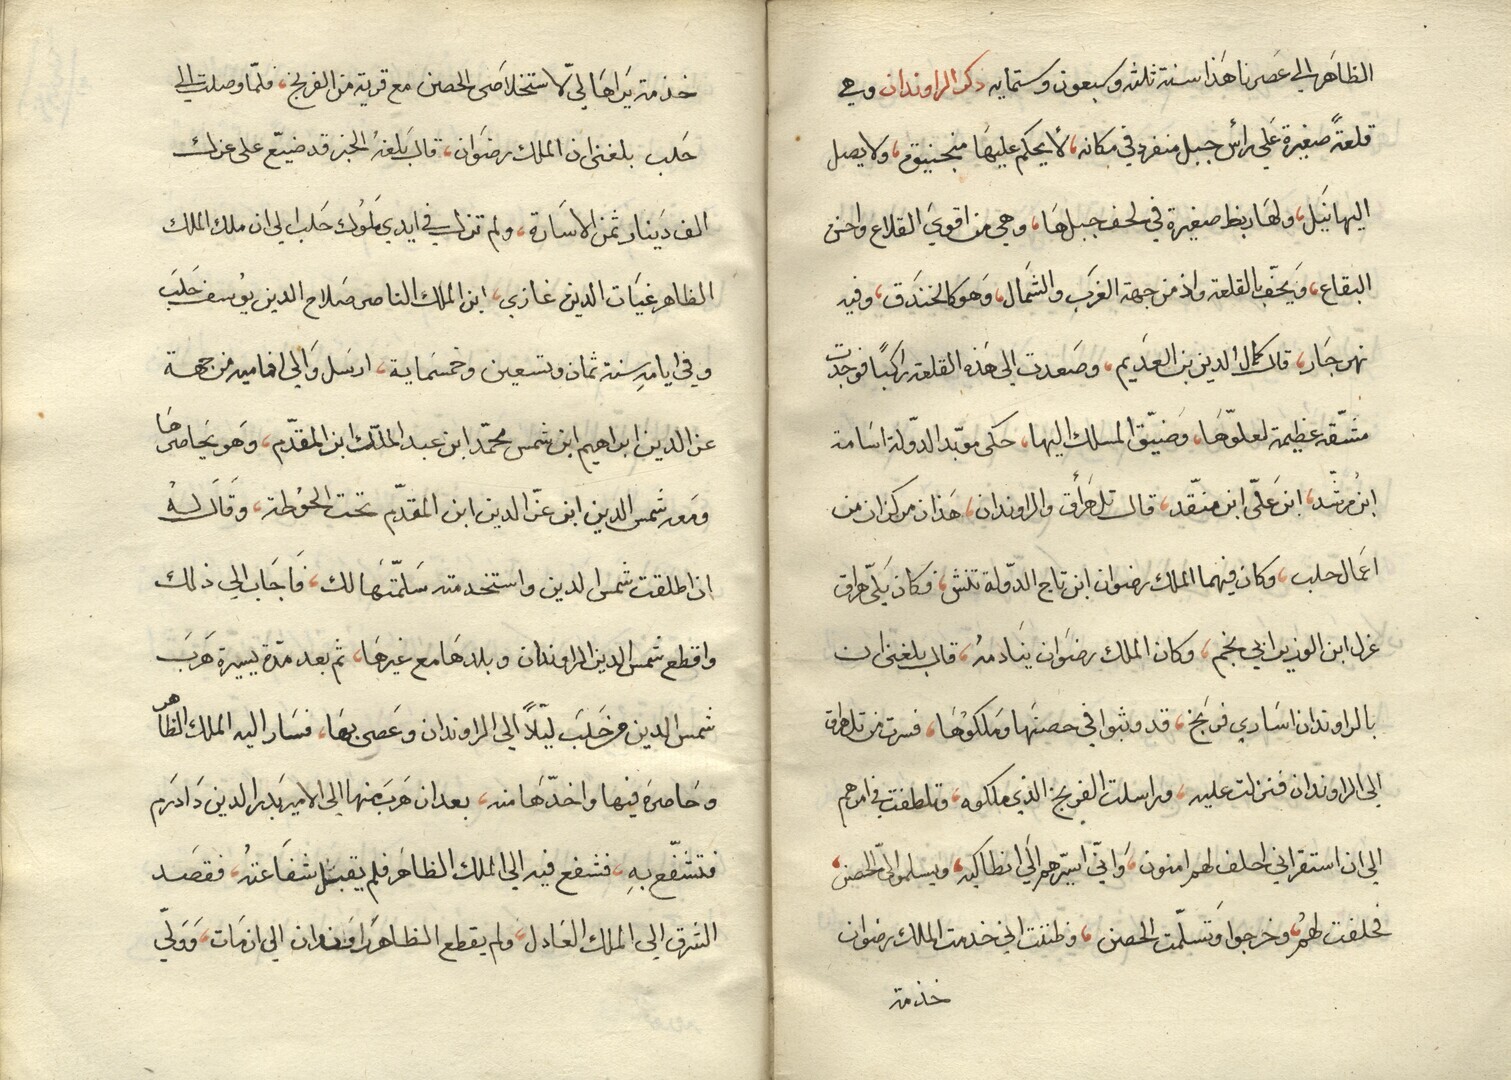 الظاهر الي عصرنا هذا سنة ثلثه وسبعون وستمايه ذكر الراوندان وهي
قلعةً صغيرة علي رأس جبل منفرد في مكانه، لا يحكم عليها منجنيق، ولا يصل
اليها نبل، ولها ربط صغيرة في لحف جبلها، وهي من اقوي القلاع واحسن
البقاع، ويحف بالقلعة واد من جهة الغرب والشمال، وهو كالخندق، وفيه
نهر جار، قال كمال الدين بن العديم، وصعدت الى هذه القلعة راكباً فوجدت
مشقه عظيمة لعلوّها، وضيق المسلك اليها، حكى مويد الدولة اسامة
ابن مرشد، ابن علي ابن منقد، قال تل هراق والراوندان، هذان مركزان من
اعمال حلب، وكان فيهما الملك رضوان ابن تاج الدولة تتش، فكان يلي هراق
عزل ابن الوزير ابي نجم، وكان الملك رضوان ينادمه، قال بلغني ان
بالراوندان اساري فرنج، قد وثبوا في حصنها وملكوها، فسرت من تل هراق
الى الراوندان فنزلت عليه، وراسلت الفرنج الذي ملكوه، وتلطفت في امرهم
الي ان استقر اني احلف لهم امنون، واني اسيرهم الي انطاكيه، ويسلموا اليّ الحصن،
فحلفت لهم، وخرجوا وتسلمت الحصن، وظننت اني خدمت الملك رضوان
خذمة
خذمة يراها لي لا ستخلاصى الحصن مع قربه من الفرنج، فلما وصلت الي
حلب بلغني ان الملك رضوان، قال بلغه الخبز قد ضيّع على عزل
الف دينار ثمن الاسارة، ولم تزل في ايدي ملوك حلب الي ان ملك الملك
الظاهر غياث الدين غازي، ابن الملك الناصر صلاح الدين يوسف حلب
وفي ايامه سنة ثمان وتسعين وخمسماية، ارسل والي افاميه من جهة
عز الدين ابراهيم ابن شمس محمد ابن عبد الملك ابن المقدم، وهو يحاصرها
ومعه شمس الدين ابن عز الدين ابن المقدم تحت الحوطة، وقال له
ان اطلقت شمس الدين واستخدمته سلمتها لك، فاجاب الي ذلك
واقطع شمس الدين الراوندان وبلدها مع غيرها، ثم بعد مدة يسيرة هرب
شمس الدين من حلب ليلاً الي الراوندان وعصى بها، فسار اليه الملك الظاهر
وحاصره فيها واخذها منه، بعد ان هرب منها الى الامير بدر الدين دادرم
فتشفع به، فشفع فيه الي الملك الظاهر فلم يقبل شفاعته، فقصد
الشرق الي الملك العادل، ولم يقطع الظاهر الراوندان الي ان مات، وولي